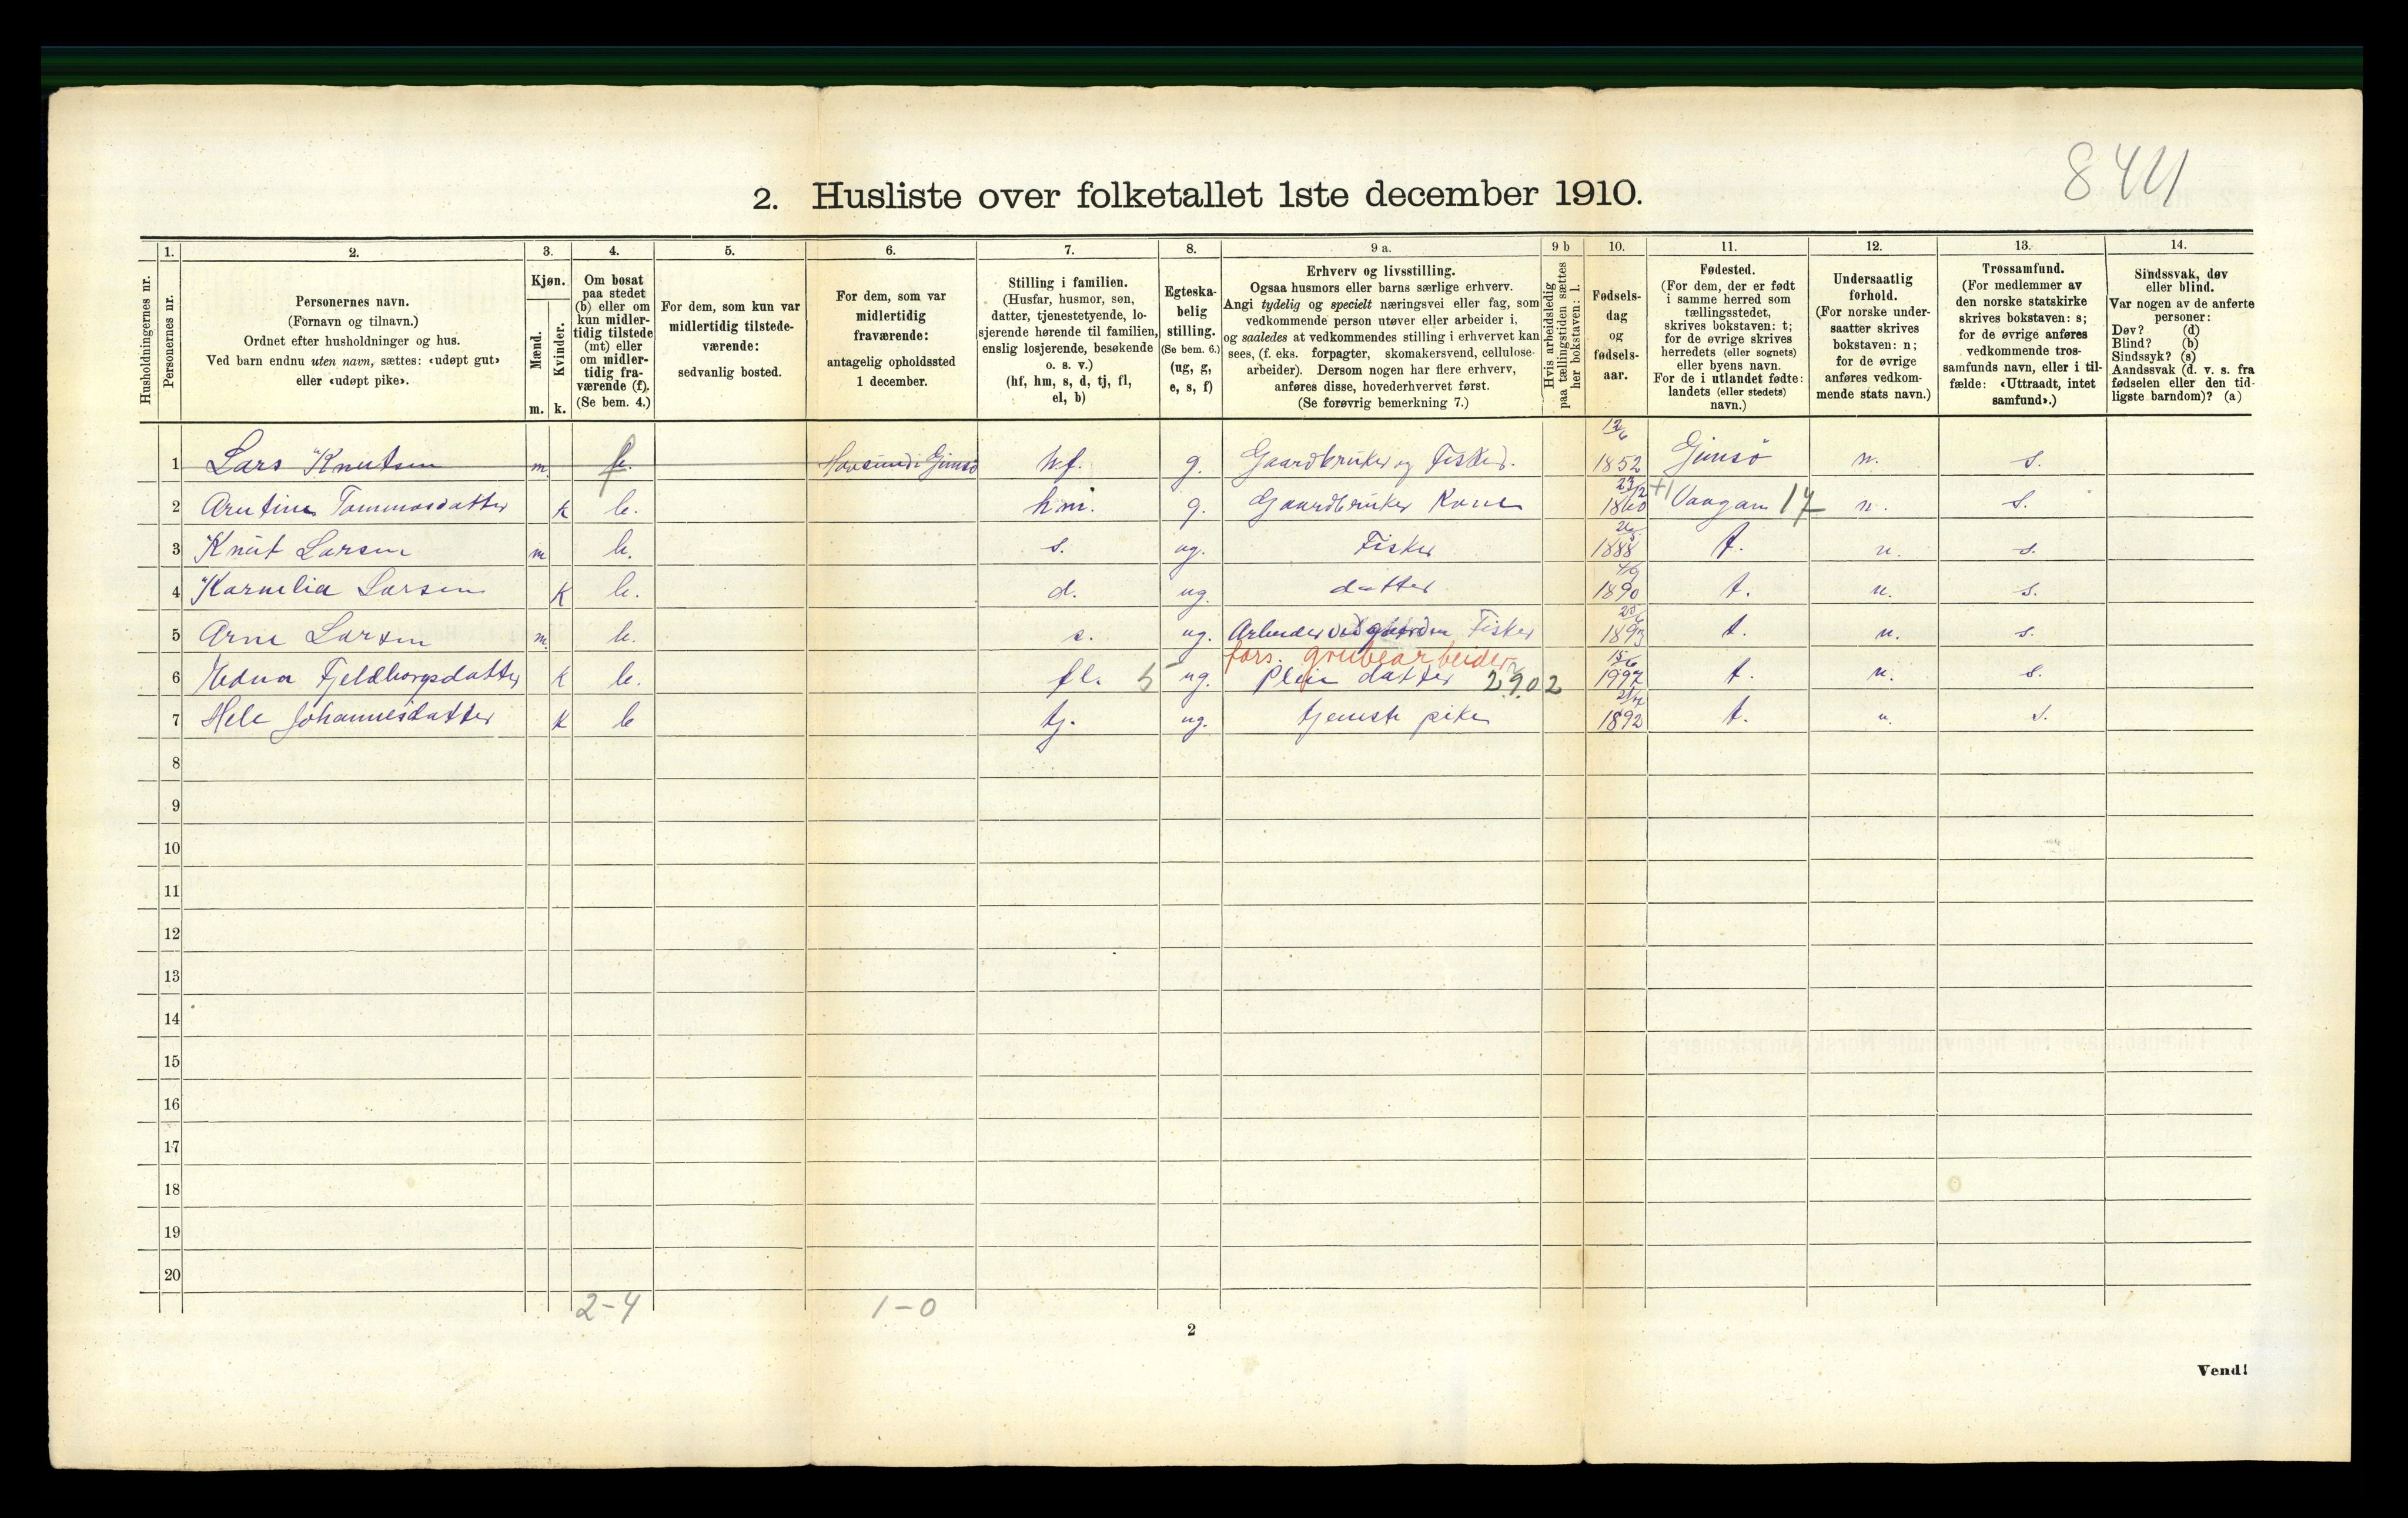 844
2. Husliste over folketallet 1ste december 1910.
1. 2. 3. 4. 5. 6. 7. 8. 9 a. 9 b 10. 11. 12. 13. 14.
Husholdningernes nr.
Personernes nr.
Personernes navn.
(Fornavn og tilnavn.)
Ordnet efter husholdninger og hus.
Ved barn endnu uten navn, sættes: «udøpt gut»
eller «udøpt pike».
Kjøn.
Mænd.
Kvinder.
m. k.
Om bosat
paa stedet
(b) eller om
kun midler-
tidig tilstede
(mt) eller
om midler-
tidig fra-
værende (f).
(Se bem. 4.)
For dem, som kun var
midlertidig tilstede-
værende:
sedvanlig bosted.
For dem, som var
midlertidig
fraværende:
antagelig opholdssted
1 december.
Stilling i familien.
(Husfar, husmor, søn,
datter, tjenestetyende, lo-
sjerende hørende til familien,
enslig losjerende, besøkende
o. s. v.)
(hf, hm, s, d, tj, fl,
el, b)
Egteska-
belig
stilling.
(Se bem. 6.)
(ug, g,
e, s, f)
Erhverv og livsstilling.
Ogsaa husmors eller barns særlige erhverv.
Angi tydelig og specielt næringsvei eller fag, som
vedkommende person utøver eller arbeider i,
og saaledes at vedkommendes stilling i erhvervet kan
sees, (f. eks. forpagter, skomakersvend, cellulose-
arbeider). Dersom nogen har flere erhverv,
anføres disse, hovederhvervet først.
(Se forøvrig bemerkning 7.)
Hvis arbeidsledig
paa tællingstiden sættes
her bokstaven: l.
Fødsels-
dag
og
fødsels-
aar.
Fødested.
(For dem, der er født
i samme herred som
tællingsstedet,
skrives bokstaven: t;
for de øvrige skrives
herredets (eller sognets)
eller byens navn.
For de i utlandet fødte:
landets (eller stedets)
navn.)
Undersaatlig
forhold.
(For norske under-
saatter skrives
bokstaven: n;
for de øvrige
anføres vedkom-
mende stats navn.)
Trossamfund.
(For medlemmer av
den norske statskirke
skrives bokstaven: s;
for de øvrige anføres
vedkommende tros-
samfunds navn, eller i til-
fælde: «Uttraadt, intet
samfund».)
Sindssvak, døv
eller blind.
Var nogen av de anførte
personer:
Døv? (d)
Blind? (b)
Sindssyk? (s)
Aandssvak (d. v. s. fra
fødselen eller den tid-
ligste barndom)? (a)
1 Lars Knutsen m f. Gimsö hf. g. Gaardbruker og Fisker. 12/6 1852 Gimsö n. s.
2 Tommasdatter k b. hm. g. Gaardbruker Kone 1860 +1 Vaagan 17 n. s.
3 Knut Larsen m b. s. ug. Fisker 1888 t. n. s.
4 Kornelia Larsen k b. d. ug. datter 1890 t. n. s.
5 Arne Larsen m b. s. ug. Arbeider ved gaarden Fisker 1893 t. n. s.
fars. grubearbeider
6 Fjeldborgsdatter k b. fl. 5 ug. Pleie datter 2902 15/6 1997 t. n. s.
7 Johannesdatter k b tj. ug. tjeneste pike 1892 t. n. s.
8
9
10
11
12
13
14
15
16
17
18
19
20
2-4 1-0
2
Vend!